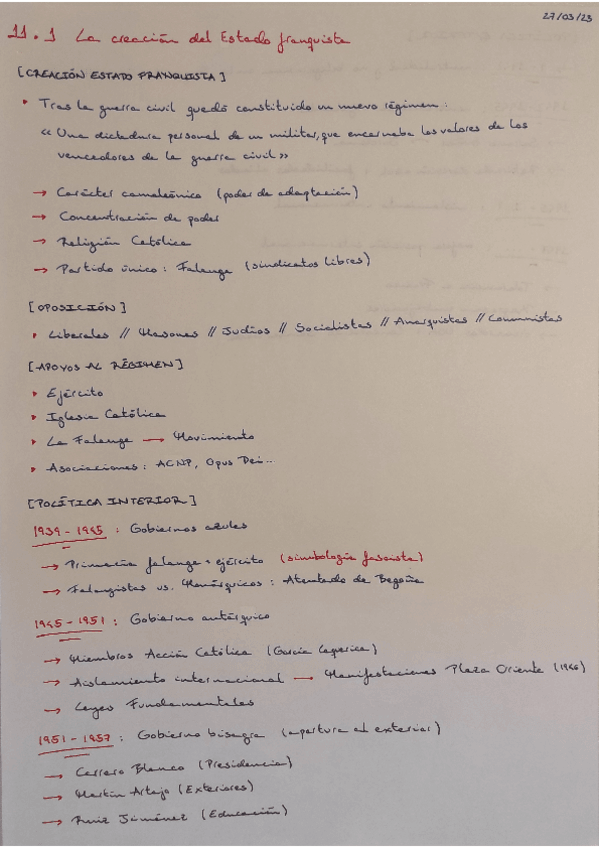 27/03/23
11.1 La creación del Estado franquista
[CREACIÓN ESTADO FRANQUISTA]
• Tras la guerra civil quedó constituido un nuevo régimen:
« Una dictadura personal de un militar, que encarnaba los valores de los
vencedores de la guerra civil »
→ Carácter camaleónico (poder de adaptación)
→ Concentración de poder
→ Religión Católica
→ Partido único: Falange (sindicatos libres)
[OPOSICIÓN]
• Liberales // Masones // Judíos // Socialistas // Anarquistas // Comunistas
[APOYOS AL RÉGIMEN]
• Ejército
• Iglesia Católica
• La Falange → Movimiento
• Asociaciones: ACNP, Opus Dei...
[POLÍTICA INTERIOR]
1939 - 1945 : Gobiernos azules
→ Primacía falange + ejército (simbología fascista)
→ Falangistas vs. Monárquicos : Atentado de Begoña
1945 - 1951 : Gobierno autárquico
→ Miembros Acción Católica (García Laperica)
→ Aislamiento internacional → Manifestaciones Plaza Oriente (1946)
→ Leyes Fundamentales
1951 - 1957 : Gobierno bisagra (apertura al exterior)
→ Carrero Blanco (Presidencia)
→ Martín Artajo (Exteriores)
→ Ruiz Jiménez (Educación)